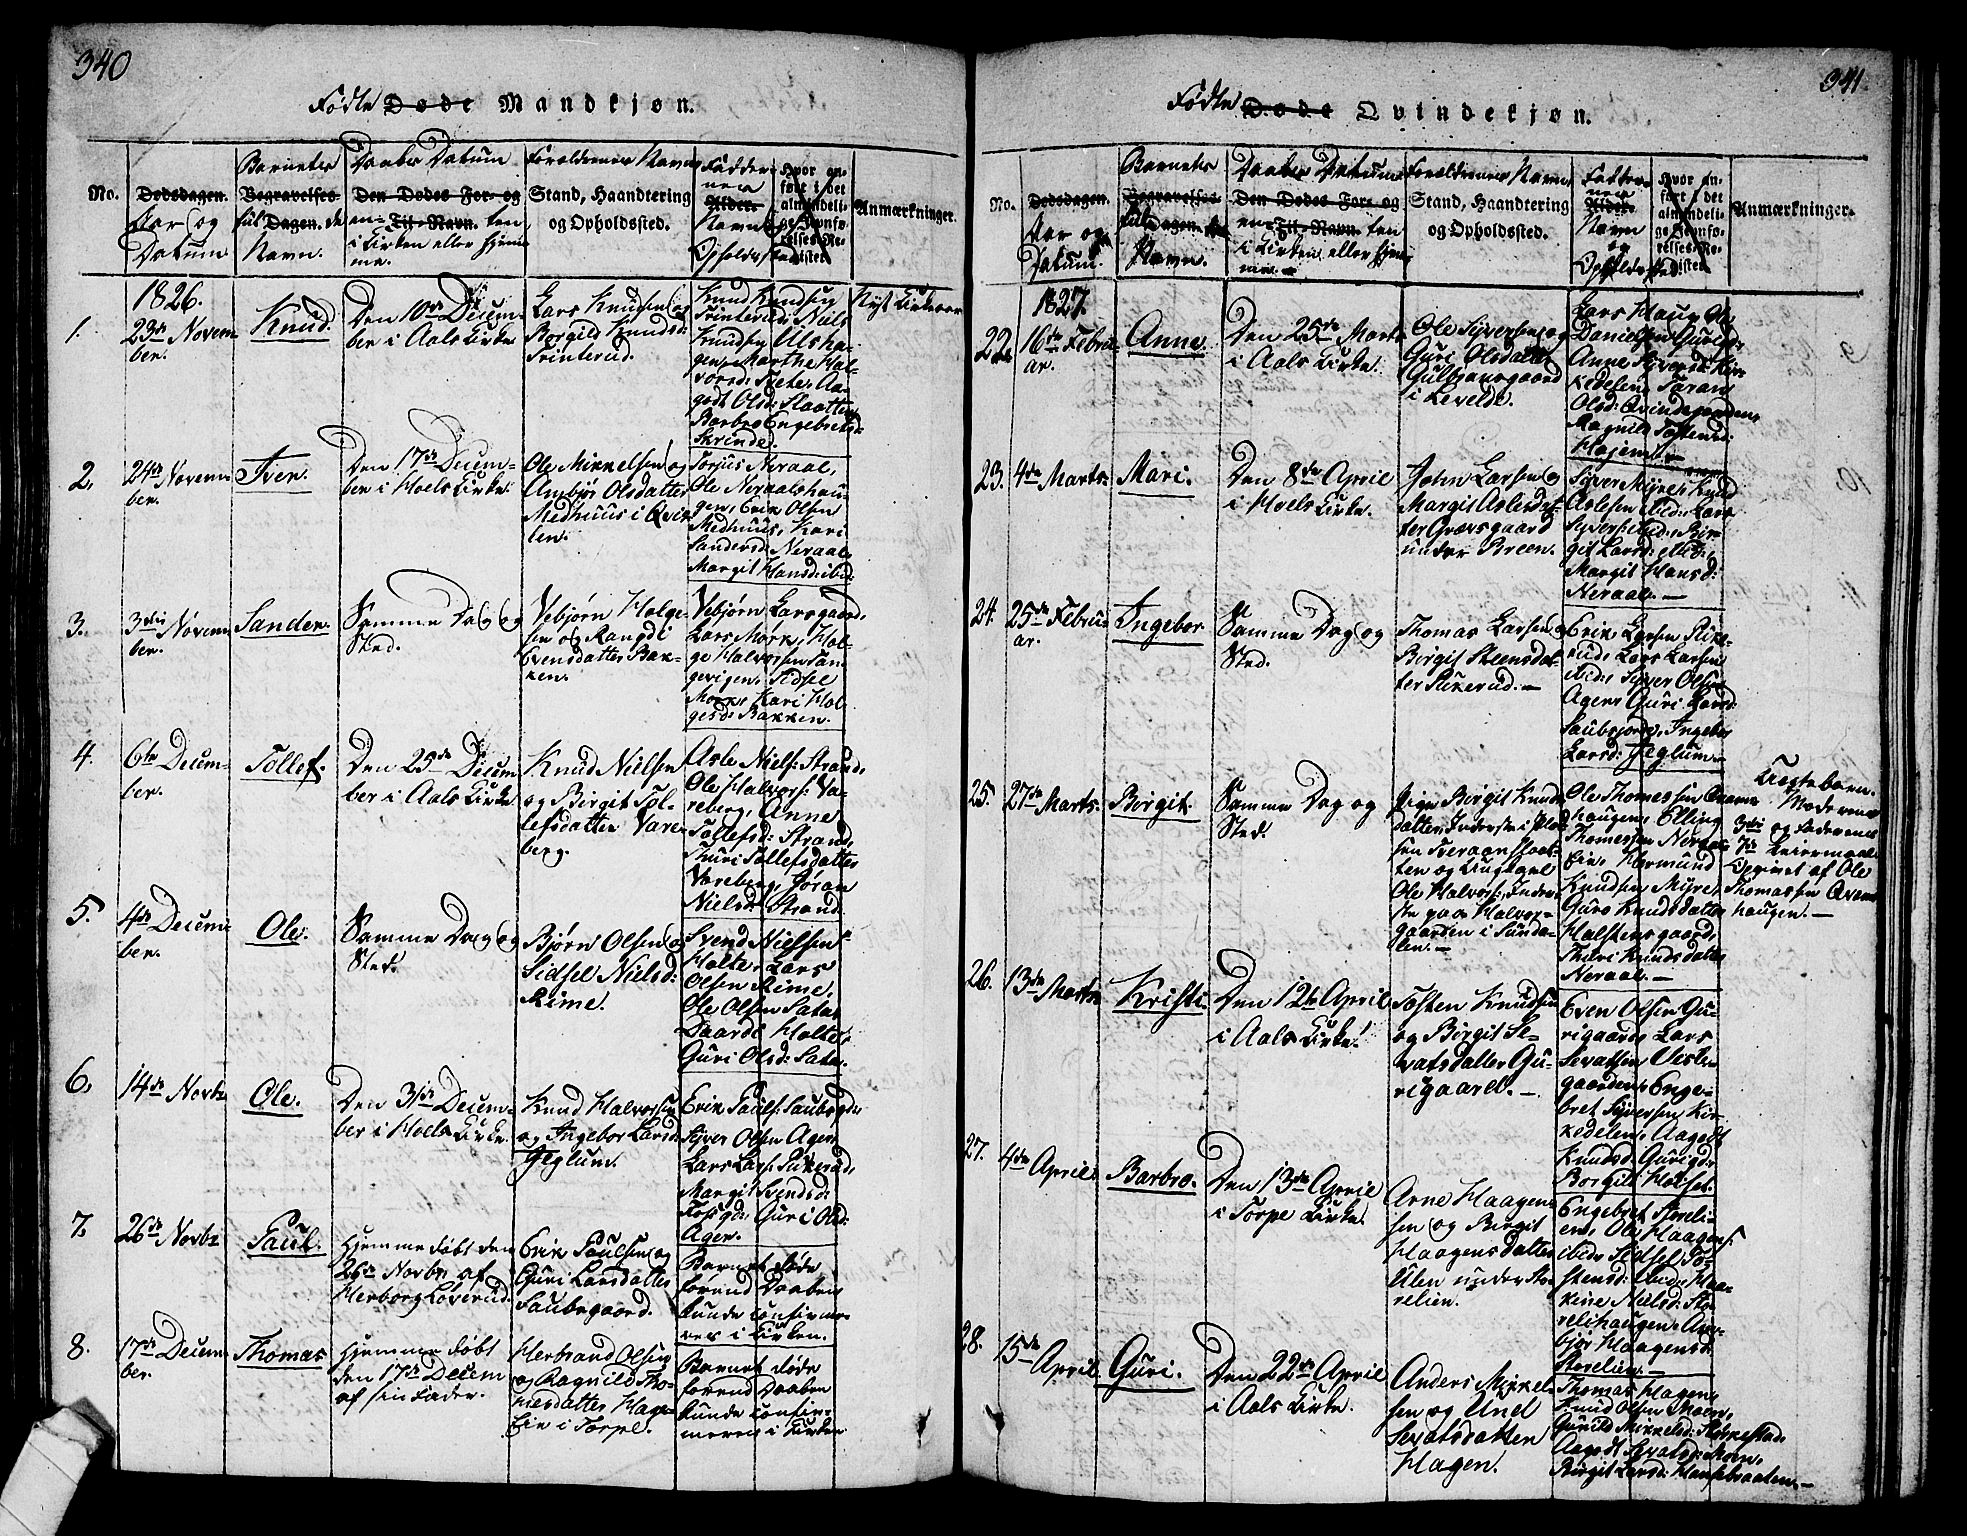 340
Fødte Døde Mandkjøn.
No.
Dødsdagen.
Aar og
Datum
Barnets
Begravelses
Dagen.
Navn.
Daabs Datum
Den Dødes For- og
Til-Navn.
i Kirken eller hjem
me.
Forældrenes Navn
Stand, Haandtering
og Opholdssted.
Fadder
nes
Alder.
Navn
Hvor an-
ført i det
almindeli-
ge Jevnfø-
relses-Re-
gister.
Anmærkninger.
1826.
1.
23de Novem
ber.
Knud.
Den 10de Decem-
ber i Aals Kirke
Lars Knudsen og
Birgild Knudsd:
Trinterud.
Knud Knudsen
Trinterud, Niels
Knudsen Ulsha-
gen, Marthe Hal-
vorsd: Tveto, Aa-
godt Olsd: Slaatten
Barbro Engebretsd:
Skrinde.
Nyt Kirkeaar
2.
24de Novem
ber.
Iver.
Den 17de Decem-
ber i Hoels Kirke.
Ole Mikkelsen og
Ambjør Olsdatter
Medhuus i Qvin
ten.
Torjus Neraal,
Ole Neraalshau-
gen, Erik Olsen
Medhuus, Kari
Sandersd: Neraal,
Margit Hansd: ibid:
3.
3die Novem
ber.
Sander.
Samme Dag og
Sted.
Vebjørn Holge
sen og Rangdi
Evensdatter Bak-
ken.
Vebjørn Larsgaard,
Lars Mørk, Hol-
ge Halvorsen San
gevigen, Sidsel
Mørk, Kari Hol-
gesd: Bakken.
4.
6te Decem-
ber.
Tollef.
Den 25de Decem
ber i Aals Kirke
Knud Nielsen
og Birgit Tol-
lefsdatter Vare-
berg.
Asle Niels: Strand,
Ole Halvors: Va-
reberg, Anne
Tollefsd: Strand,
Thuri Tollefsdatter
Vareberg, Jøran
Nielsd: Strand.
5.
4de Decem
ber.
Ole.
Samme Dag og
Sted.
Bjørn Olsen og
Sidsel Nielsd:
Rime.
Svend Nielsen
Holte, Lars
Olsen Rime,
Ole Olsen Sata,
Daarde Holte,
Guri Olsd: Sata.
6.
14de Novbr
Ole.
Den 31te Decem-
ber i Hoels Kirke
Knud Halvorsen
og Ingebor Larsd:
Jeglum.
Erik Pauls: Saubsgd:
Syver Olsen Ager,
Lars Lars: Rikerud,
Margit Svendsd:
Fossgd: Guri Olsd:
Ager.
7.
26de Novbr
Paul.
Hjemme døbt den
26de Novbr af
Herborg Løverud.
Erik Paulsen og
Guri Larsdatter
Saubsgaard.
Barnet døde
førend Daaben
kunde confirme-
res i Kirken.
8.
17de Decem
ber.
Thomas
Hjemme døbt
den 17de Decem
af sin Fader.
Herbrand Olsen
og Ragnild Tho-
mesdatter Hage-
Eie i Torpe.
Barnet døde
førend Daaben
kunde confir-
meres i Kirken
341
Fødte Døde Qvindekjøn.
No.
Dødsdagen.
Aar og
Datum.
Barnets
Begravelses
Dagen.
Navn.
Daabs Datum
Den Dødes For- og
Til-Navn.
i Kirken eller hjem
me.
Forældrenes Navn,
Stand, Haandtering
og Opholdssted.
Navn
og
Hvor an-
ført i det
almindeli-
ge Jevnfø-
relses-Re-
gister.
Anmærkninger.
1827.
22.
16de Febru
ar.
Anne.
Den 25de Marts
i Aals Kirke.
Ole Syversen og
Guri Olsdatter
Gulhansgaard
i Leveld.
Lars Haug, Ole
Danielsen Gurigd:
Anne Syversd: Kir-
kedelen, Jøran
Olsd: Qvindegaarden,
Magnild Tostensd:
Hojem.
23.
4de Marts
Mari.
Den 8de April
i Hoels Kirke.
John Larsen og
Margit Aslesdat-
ter Grøvsgaard
under Breen.
Syver Myre, Knud
Aslesen ibid: Lars
Syvers: ibid: Bir-
git Larsd: ibid:
Margit Hansd:
Neraal.
24.
25de Febru-
ar.
Ingebor.
Samme Dag og
Sted.
Thomas Larsen og
Birgit Steensdat-
ter Rikerud.
Erik Larsen Rike-
rud, Lars Larsen
ibid: Syver Olsen
Ager, Guri Larsd:
Saubsjord, Ingebor
Larsd: Jeglum.
25.
27de Marts.
Birgit.
Samme Dag og
Sted.
Pige Birgit Knuds
datter
og Ungkarl
Ole Halvors:
paa Halvor-
gaarden i Sunda-
len.
Ole Thomessen Qvam
haugen, Elling
Thomessen Neraal-
Eie, Hermund
Knudsen Myre,
Guro Knudsdatter
Halstensgaard,
Thuri Knudsdatter
Neraal.
Uægte barn.
Moderens
3die og Faderens
7de Leiermaal.
Opgivet af Ole
Thomassen Qvam
haugen.
26.
13de Marts
Kristi.
Den 12te April
i Aals Kirke.
Tosten Knudsen
og Birgit Se-
vatsdatter Gu-
rigaard.
Even Olsen Gu-
rigaard, Lars
Sevatsen Vestre-
gaarden, Enge-
bret Syversen Kir-
kedelen, Aagodt
Knudsd: Gurigd:
Birgit Holset.
27.
4de April
Barbro.
Den 13de April
i Torpe Kirke.
Arne Haagen-
sen og Birgit
Haagensdatter
Ulen under Sto-
relien.
Engebret Storeli-
en, Ole Haagens:
ibid: Sidsel To-
stensd: ibid: Haa-
kine Nielsd: Sto-
relihaugen, Am-
bjør Haagensd:
Storelien.
28.
15de
April
Guri.
Den 22de April
i Aals Kirke.
Anders Mikkel-
sen og Unel
Sevatsdatter
Hagen.
Thomas Hagen,
Knud Olsen Moen,
Gunild Mikkelsd:
Aagodt Sevatsd: Moen,
Birgit Larsd: